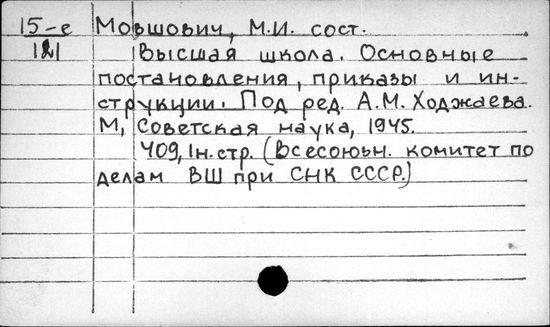 15-е Мовшович, М.И. сост.
121 Высшая школа. Основные
постановления, приказы и ин-
струкции. Под ред. А.М. Ходжаева.
М, Советская наука, 1945.
409, 1н.стр. (Всесоюзн. комитет по
делам ВШ при СНК СССР.)